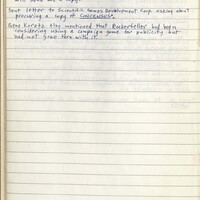 Sent letter to Scientific Games Development Corp. asking about
procuring a copy of CONSENSUS.
Gene Koretz also mentioned that Rockerfeller had been
considering using a campaign game for publicity but
had not gone thru with it.